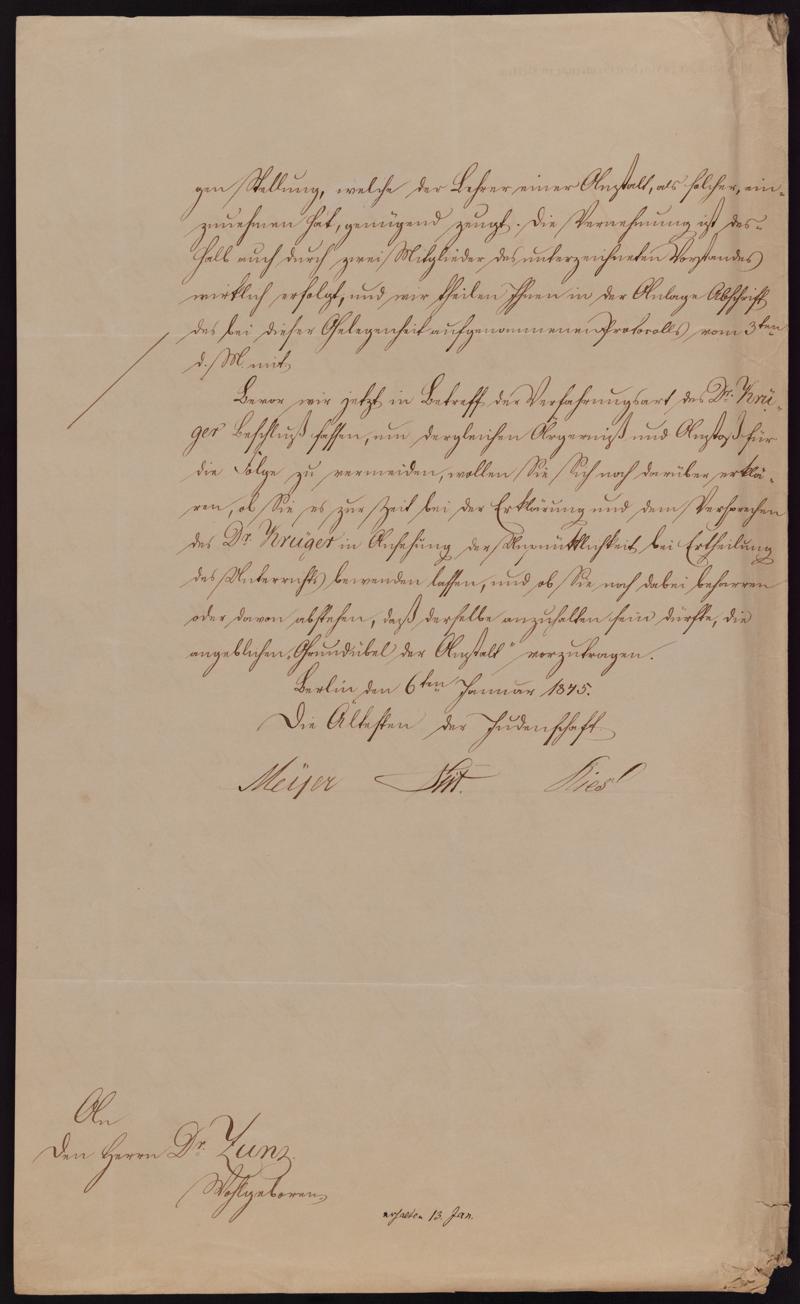 gen Stellung, welche der Lehrer einer Anstalt, als solcher, ein-
zunehmen hat, genügend zeugt. Die Vernehmung ist des-
halb auch durch zwei Mitglieder des unterzeichneten Vorstandes
wirklich erfolgt, und wir theilen Ihnen in der Anlage Abschrift
des bei dieser Gelegenheit aufgenommenen Protocolls vom 3ten
d. M. mit.
Bevor wir jetzt in Betreff der Verfahrungsart des Dr. Krü-
ger Beschluß fassen, um dergleichen Ärgerniß und Anstoß für
die Folge zu vermeiden, wollen Sie Sich noch darüber erklä-
ren, ob Sie es zur Zeit bei der Erklärung und dem Versprechen
des Dr. Krüger in Ansehung der Unpünktlichkeit bei Ertheilung
des Unterrichts bewenden lassen, und ob Sie noch dabei beharren
oder davon abstehen, daß derselbe anzuhalten sein dürfte, die
angeblichen "Grundübel der Anstalt" vorzutragen.
Berlin den 6ten Januar 1845.
Die Ältesten der Judenschaft
Meyer Riess
An
den Herrn Dr. Zunz
Wohlgeboren
erhalten 13. Jan.